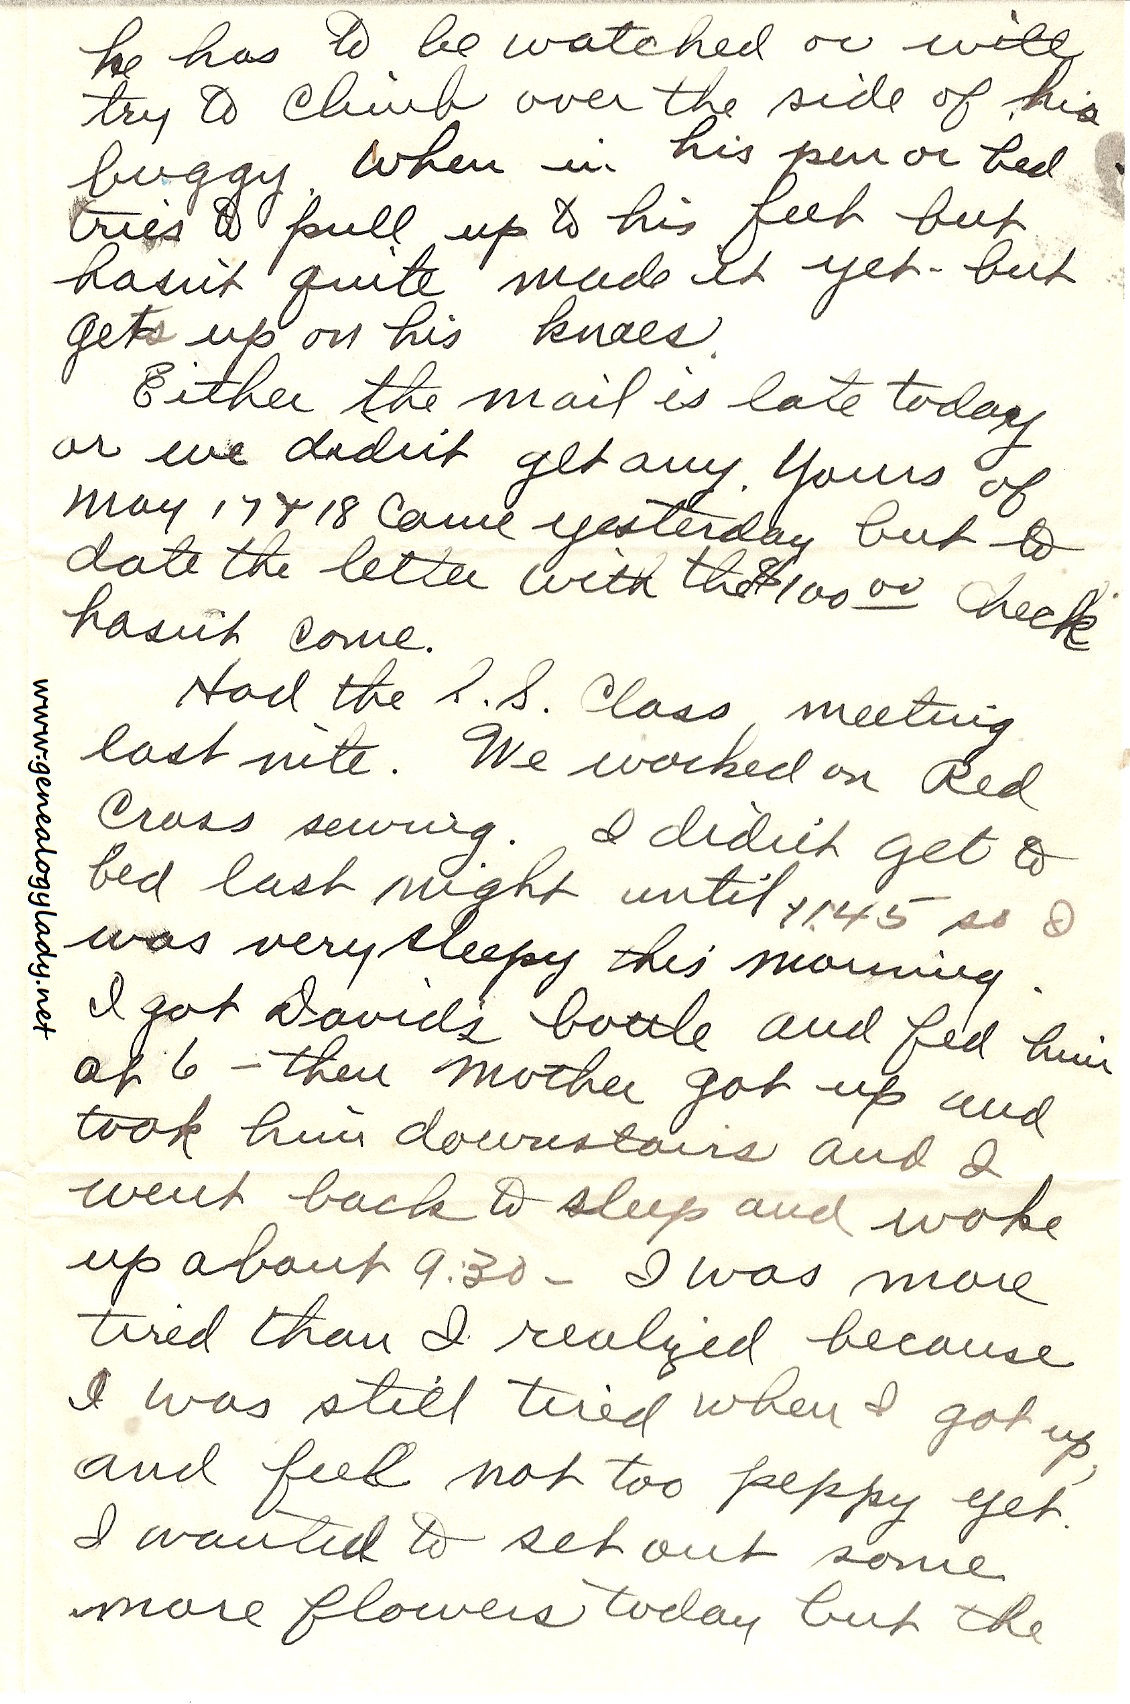 he has to be watched or will
try to climb over the side of his
buggy. When in his pen or bed
tries to pull up to his feet but
hasn't quite made it yet - but
gets up on his knees.
Either the mail is late today
or we didn't get any. Yours of
May 17 & 18 came yesterday but to
date the letter with the $100 00 check
hasn't come.
Had the S.S. Class meeting
last nite. We worked on Red
Cross sewing. I didn't get to
bed last night until 11:45 so I
was very sleepy this morning.
I got David's bottle and fed him
at 6 - then Mother got up and
took him downstairs and I
went back to sleep and woke
up about 9:30 - I was more
tired than I realized because
I was still tired when I got up,
and feel not too peppy yet.
I wanted to set out some
more flowers today but the
www.genealogylady.net